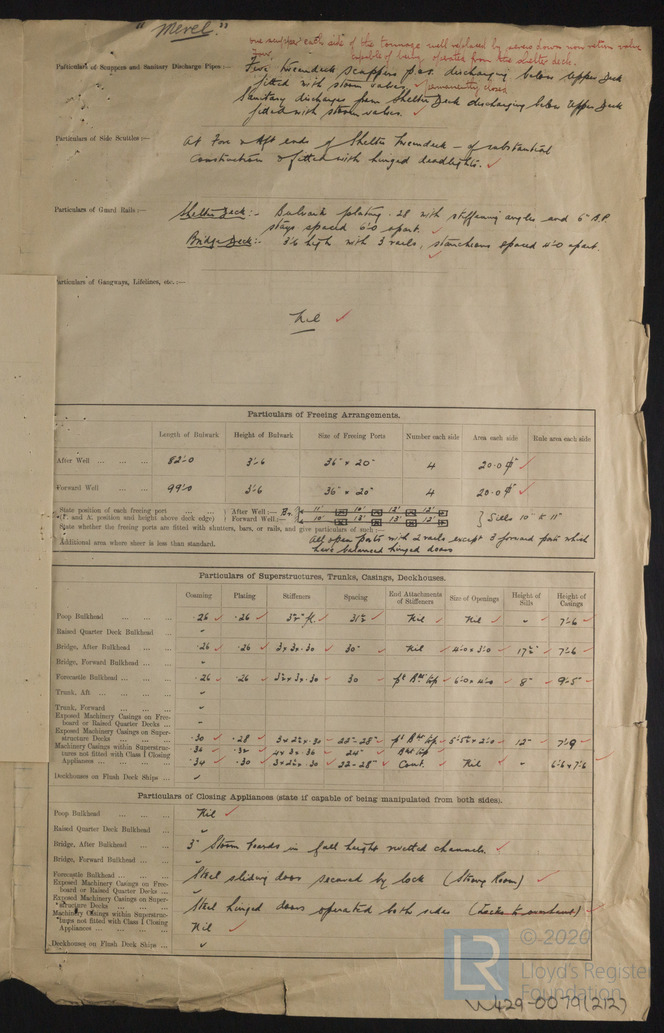 "Merel."
one scupper each side of the tonnage well replaced by screw down non return valve
Four capable of being operated from the shelter deck.
Particulars of Scuppers and Sanitary Discharge Pipes :— Five tweendeck scuppers p.&s. discharging below Upper Deck
fitted with storm valves. ✓ permanently closed
Sanitary discharges from Shelter Deck discharging below Upper Deck
fitted with storm valves. ✓
Particulars of Side Scuttles :— At Fore & Aft ends of Shelter Tweendeck – of substantial
construction & fitted with hinged deadlights. ✓
Particulars of Guard Rails :— Shelter Deck :- Bulwark plating .28 with stiffening angles and 6" B.P.
stays spaced 6'0 apart. ✓
Bridge Deck :- 3'6 high with 3 rails, stanchions spaced 4'0 apart.
Particulars of Gangways, Lifelines, etc. :—
Nil ✓
Particulars of Freeing Arrangements.
Length of Bulwark Height of Bulwark Size of Freeing Ports Number each side Area each side Rule area each side
After Well ... ... ... 82'-0 3'-6 36" x 20" 4 20.0 ✓
Forward Well 99'0 3'6 36" x 20" 4 20.0 ✓
State position of each freeing port ... ... After Well :— 11' 10' 13' 12'
(F. and A. position and height above deck edge) Forward Well :— 10' 13' 13' 12' } Sills 10" & 11"
State whether the freeing ports are fitted with shutters, bars, or rails, and give particulars of such :—
All open ports with 2 rails except 3 forward ports which
Additional area where sheer is less than standard. have balanced hinged doors
Particulars of Superstructures, Trunks, Casings, Deckhouses.
Coaming Plating Stiffeners Spacing End Attachments of Stiffeners Size of Openings Height of Sills Height of Casings
Poop Bulkhead ... ... ... .26 ✓ .26 ✓ 3½" fl. ✓ 31½ ✓ Nil ✓ Nil ✓ " ✓ 7'6 ✓
Raised Quarter Deck Bulkhead ... "
Bridge, After Bulkhead ... ... .26 ✓ .26 ✓ 3 x 3 x .30 ✓ 30" ✓ Nil ✓ 4'0 x 3'0 ✓ 17½" ✓ 7'6 ✓
Bridge, Forward Bulkhead ... ... "
Forecastle Bulkhead ... ... ... .26 ✓ .26 ✓ 3½ x 3 x .30 ✓ 30 ✓ 6'0 x 4'0 ✓ 8" ✓ 9'-5" ✓
Trunk, Aft ... ... ... "
Trunk, Forward ... ... ... "
Exposed Machinery Casings on Free-
board or Raised Quarter Decks ... "
Exposed Machinery Casings on Super-
structure Decks ... ... ... .30 ✓ .28 ✓ 3 x 2½ x .30 ✓ 22"-28" ✓ 5'5½ x 2'0 ✓ 12" ✓ 7'9 ✓
Machinery Casings within Superstruc- .32 ✓ .32 ✓ 4 x 3 x .36 ✓ 24" ✓
tures not fitted with Class I Closing
Appliances ... ... ... .34 ✓ .30 ✓ 3 x 2½ x .30 ✓ 22-28" ✓ Cont. ✓ Nil ✓ " ✓ 6'6 & 7'6 ✓
Deckhouses on Flush Deck Ships ... "
Particulars of Closing Appliances (state if capable of being manipulated from both sides).
Poop Bulkhead ... ... ... Nil ✓
Raised Quarter Deck Bulkhead ... "
Bridge, After Bulkhead ... ... 3" Storm boards in full height rivetted channels. ✓
Bridge, Forward Bulkhead ... ... "
Forecastle Bulkhead ... ... ... Steel sliding door secured by lock (Strong Room) ✓
Exposed Machinery Casings on Free-
board or Raised Quarter Decks ... "
Exposed Machinery Casings on Super-
structure Decks ... ... ... Steel hinged doors operated both sides ✓
Machinery Casings within Superstruc-
tures not fitted with Class I Closing
Appliances ... ... ... Nil ✓
Deckhouses on Flush Deck Ships ... "
© 2020
LR
Lloyd's Register
Foundation
W429-0079(212)